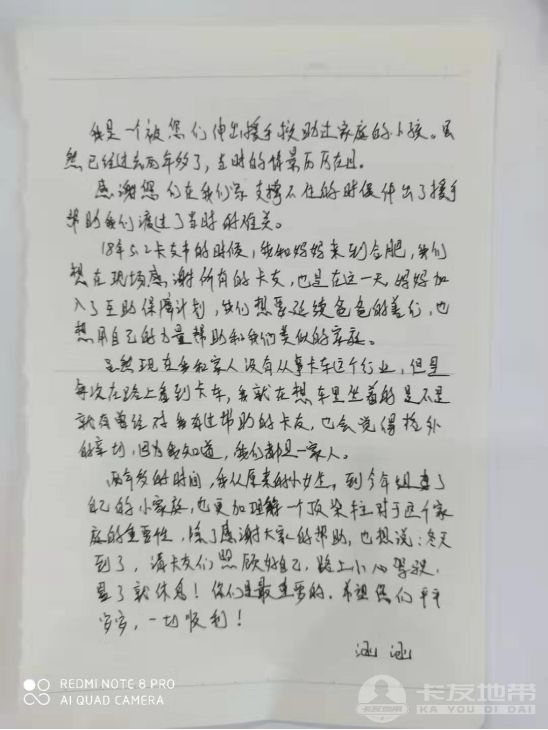 我是一个被您们伸出援手救助过家庭的小孩。虽
然已经过去两年多了，当时的情景历历在目。
感谢您们在我们家支撑不住的时候伸出了援手
帮助我们渡过了当时的难关。
18年5.2卡友节的时候，我和妈妈来到合肥，我们
想在现场感谢所有的卡友，也是在这一天妈妈加
入了互助保障计划，我们想要延续爸爸的善行，也
想用自己的力量帮助和我们类似的家庭。
虽然现在我和家人没有从事卡车这个行业，但是
每次在路上看到卡车，我就在想车里坐着的是不是
就有曾经对我有过帮助的卡友，也会觉得格外
的亲切，因为我知道，我们都是一家人。
两年多的时间，我从原来的小女生，到今年组建了
自己的小家庭，也更加理解一个顶梁柱对于这个家
庭的重要性，除了感谢大家的帮助，也想说：冬天
到了，请卡友们照顾好自己，路上小心驾驶，
累了就休息！你们是最重要的，希望您们平平
安安，一切顺利！
涵涵
REDMI NOTE 8 PRO
AI QUAD CAMERA
卡友地带
KA YOU DI DAI